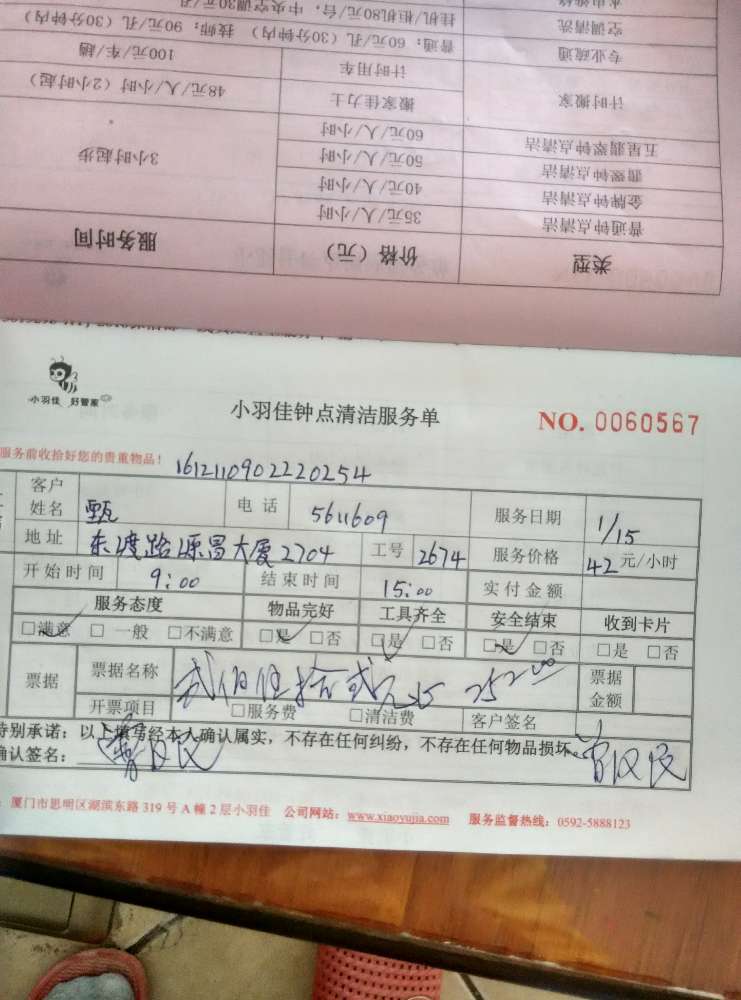 水电维修
空调清洗 挂机/柜机80元/台，中央空调30元/孔
专业疏通 普通：60元/孔（30分钟内） 技师：90元/孔（30分钟内）
计时搬家 计时用车 100元/车/趟
搬家佳力士 48元/人/小时（2小时起）
五星翡翠钟点清洁 60元/人/小时
翡翠钟点清洁 50元/人/小时 3小时起步
金牌钟点清洁 40元/人/小时
普通钟点清洁 35元/人/小时
类型 价格（元） 服务时间
小羽佳 好管家
小羽佳钟点清洁服务单 NO. 0060567
服务前收拾好您的贵重物品！ 1612110902220254
客户姓名 甄 电话 5611609 服务日期 1/15
地址 东渡路源昌大厦2704 工号 2674 服务价格 42元/小时
开始时间 9:00 结束时间 15:00 实付金额
服务态度 物品完好 工具齐全 安全结束 收到卡片
□满意 □一般 □不满意 □是 □否 □是 □否 □是 □否 □是 □否
票据 票据名称 贰佰伍拾贰元 252.00 票据金额
开票项目 □服务费 □清洁费 客户签名
特别承诺：以上填写经本人确认属实，不存在任何纠纷，不存在任何物品损坏。
确认签名：
厦门市思明区湖滨东路 319 号 A 幢 2 层小羽佳 公司网站：www.xiaoyujia.com 服务监督热线：0592-5888123